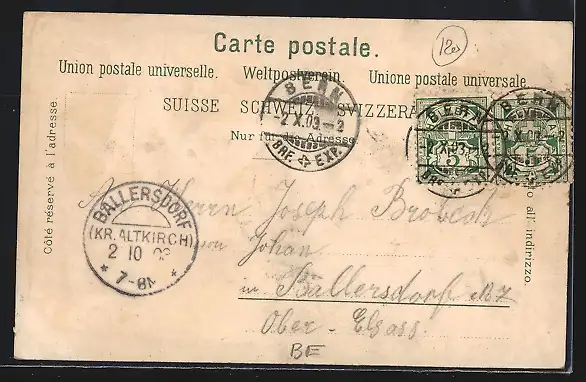 Carte postale.
12.-
Union postale universelle. Weltpostverein. Unione postale universale
SUISSE SCHWEIZ SVIZZERA
Nur für die Adresse
Côté réservé à l'adresse.
all' indirizzo.
BERN
2.X.03.-2
BRF. EXP.
BERN
5
BERN
5
BALLERSDORF
(KR. ALTKIRCH)
2 10 03
* 7-8N *
An Herrn Joseph
von Johan
in Ballersdorf
Ober-Elsass.
BE